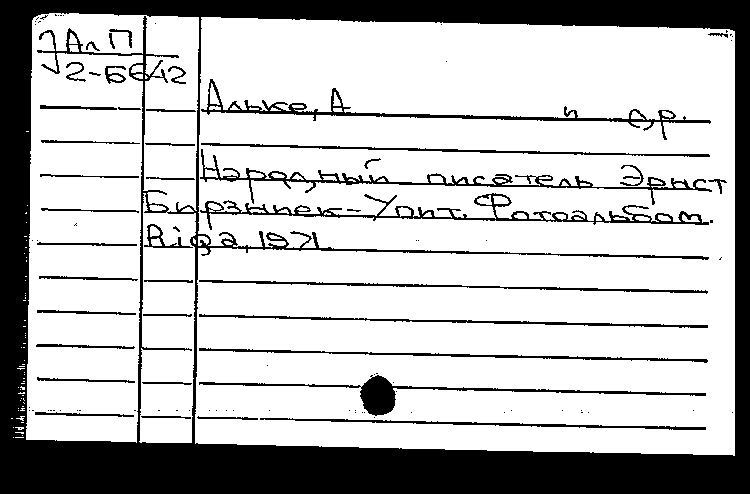 АлП
2-Б642
Альке, А и др.
Народный писатель Эрнст
Бирзниек-Упит. Фотоальбом.
Riga, 1971